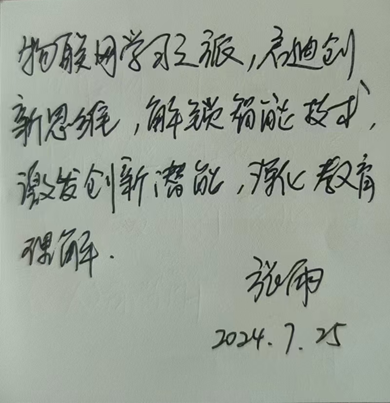 物联网学习之派,启迪创
新思维,解锁智能技术,
激发创新潜能,深化教育
理解.
张雨
2024.7.25